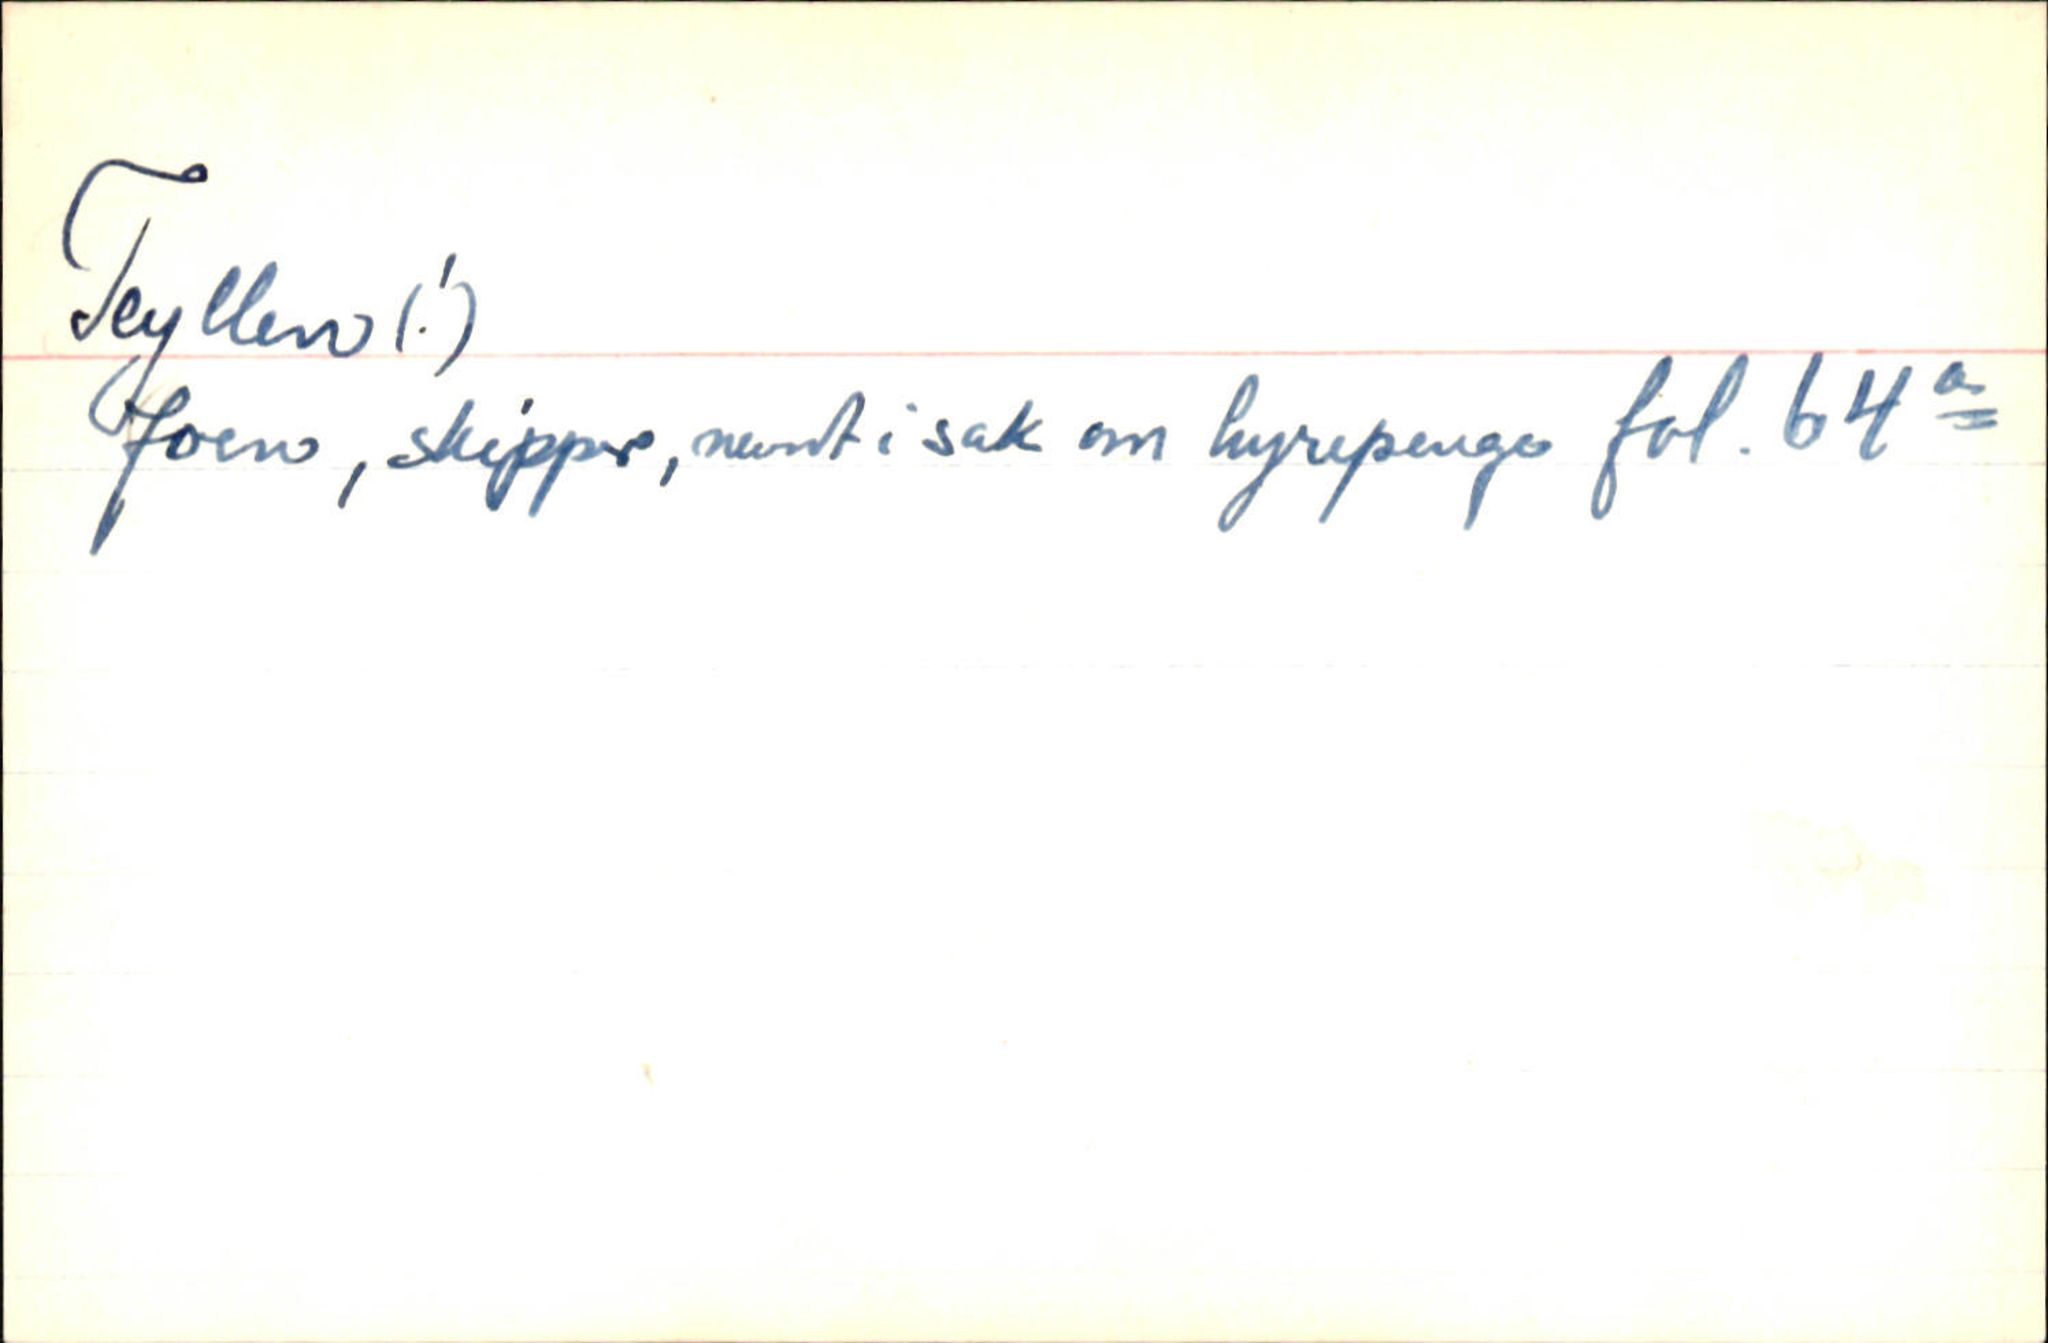 Teyllen (!)
Joen, skipper, nevnt i sak om hyrepenge fol. 64 a